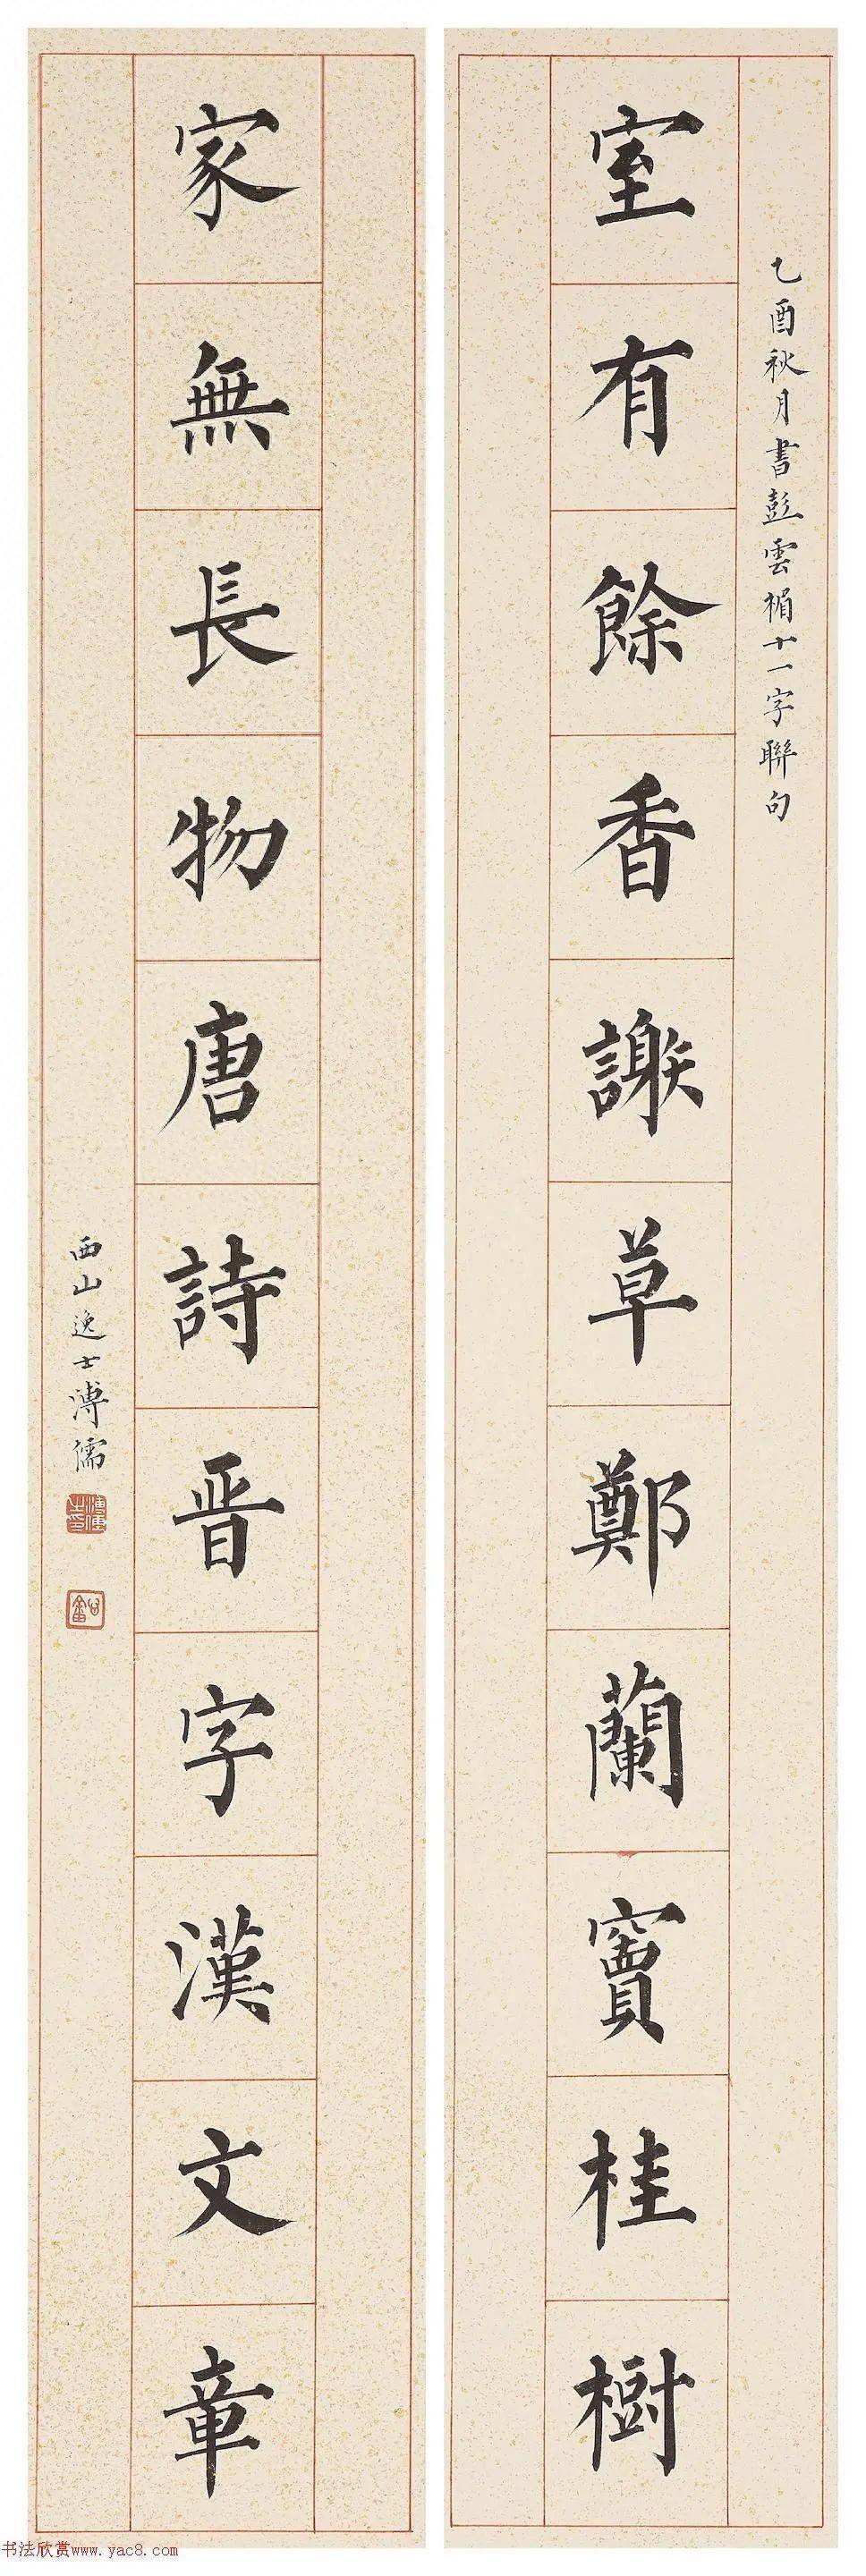 乙酉秋月書彭雲楣十一字聯句
室有餘香謝草鄭蘭竇桂樹
家無長物唐詩晋字漢文章
西山逸士溥儒
书法欣赏www.yac8.com